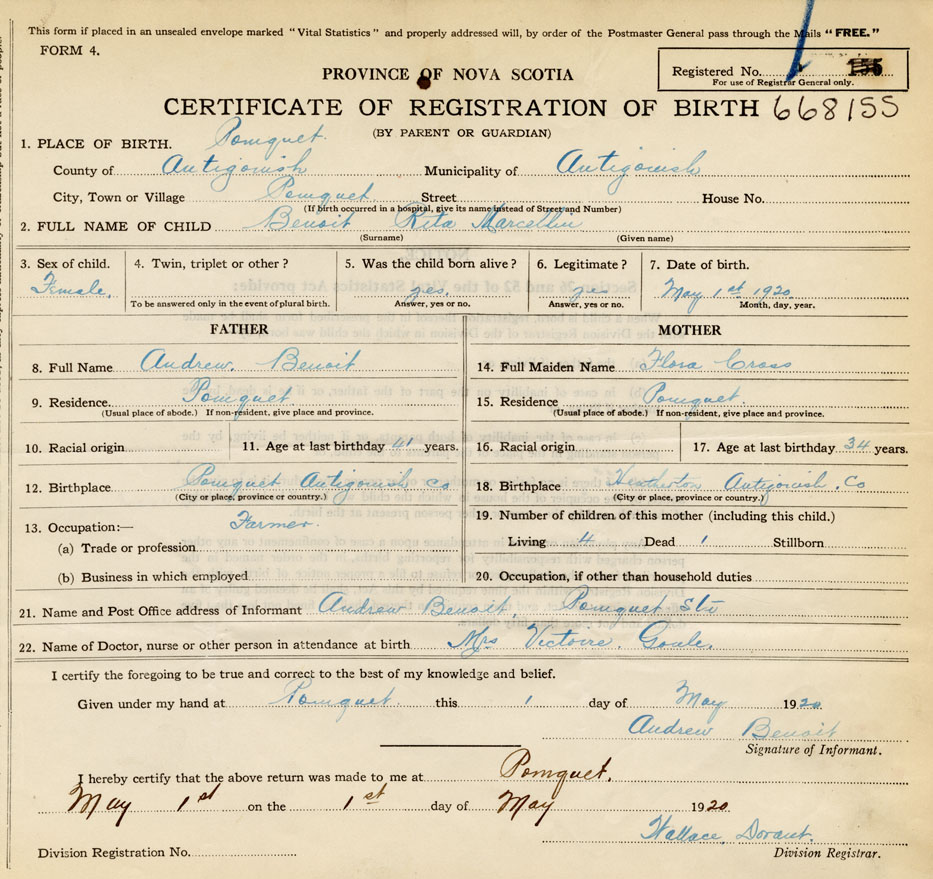 This form if placed in an unsealed envelope marked "Vital Statistics" and properly addressed will, by order of the Postmaster General pass through the Mails "FREE."
FORM 4.
Registered No. 155
For use of Registrar General only.
PROVINCE OF NOVA SCOTIA
CERTIFICATE OF REGISTRATION OF BIRTH 668155
(BY PARENT OR GUARDIAN)
1. PLACE OF BIRTH. Pomquet.
County of Antigonish Municipality of Antigonish
City, Town or Village Pomquet Street House No.
(If birth occurred in a hospital, give its name instead of Street and Number)
2. FULL NAME OF CHILD Benoit Rita Marcellin
(Surname) (Given name)
3. Sex of child. 4. Twin, triplet or other? 5. Was the child born alive? 6. Legitimate? 7. Date of birth.
Female. yes. yes. May 1st 1920
To be answered only in the event of plural birth. Answer, yes or no. Answer, yes or no. Month, day, year.
FATHER MOTHER
8. Full Name Andrew. Benoit 14. Full Maiden Name. Flora Cross
9. Residence. Pomquet 15. Residence Pomquet.
(Usual place of abode.) If non-resident, give place and province. (Usual place of abode.) If non-resident, give place and province.
10. Racial origin 11. Age at last birthday 41 years. 16. Racial origin 17. Age at last birthday 34 years.
12. Birthplace Pomquet Antigonish Co 18. Birthplace Heatherton Antigonish. Co
(City or place, province or country.) (City or place, province or country.)
13. Occupation:— Farmer. 19. Number of children of this mother (including this child.)
(a) Trade or profession. Living 4 Dead 1 Stillborn
(b) Business in which employed. 20. Occupation, if other than household duties
21. Name and Post Office address of Informant Andrew Benoit, Pomquet Stn
22. Name of Doctor, nurse or other person in attendance at birth Mrs Victoire.
I certify the foregoing to be true and correct to the best of my knowledge and belief.
Given under my hand at Pomquet. this 1 day of May 1920
Andrew Benoit
Signature of Informant.
I hereby certify that the above return was made to me at Pomquet.
May 1st on the 1st day of May 1920
Wallace Dorant.
Division Registrar.
Division Registration No.